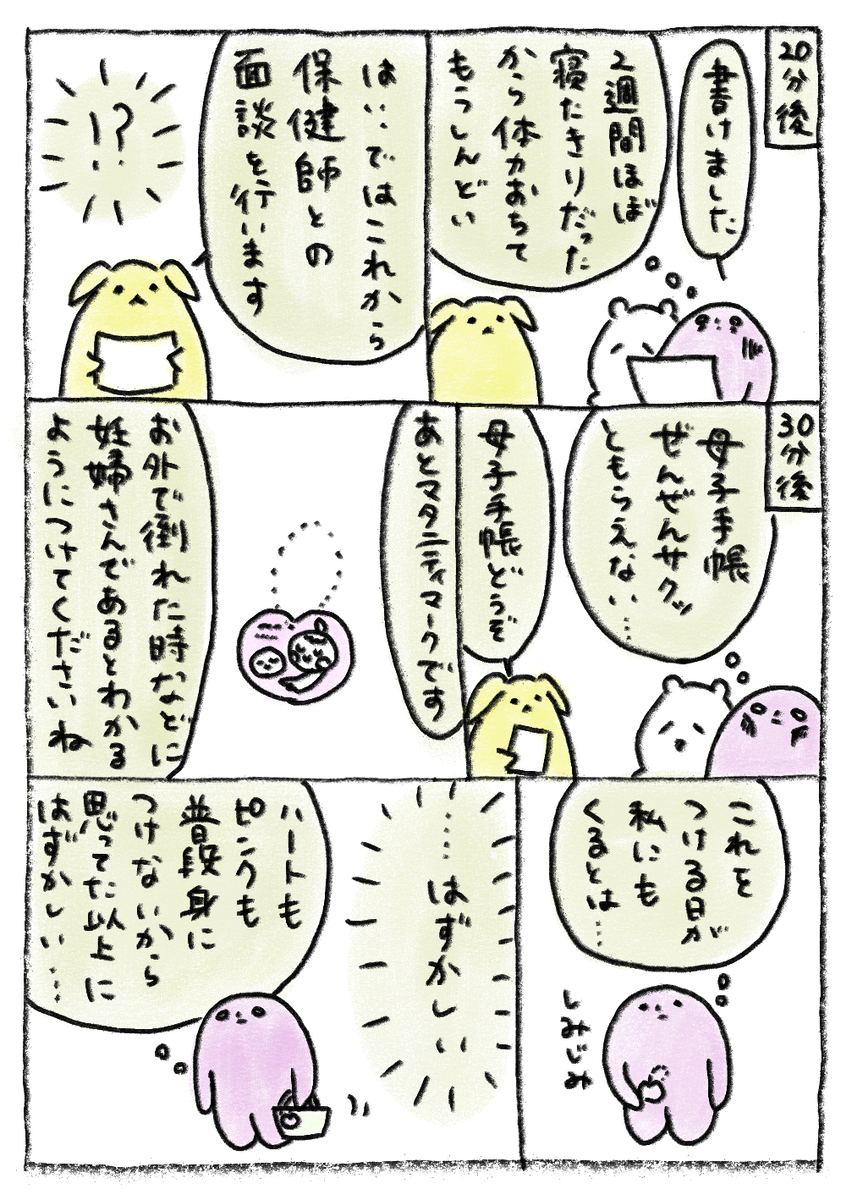 20分後
書けました
2週間ほぼ
寝たきりだった
から体力おちて
もうしんどい
はい、ではこれから
保健師との
面談を行います
!?
30分後
母子手帳
ぜんぜんサクッ
ともらえない…
母子手帳どうぞ
あとマタニティマークです
お外で倒れた時などに
妊婦さんであるとわかる
ようにつけてくださいね
これを
つける日が
私にも
くるとは…
しみじみ
……はずかしい
ハートも
ピンクも
普段身に
つけないから
思ってた以上に
はずかしい…